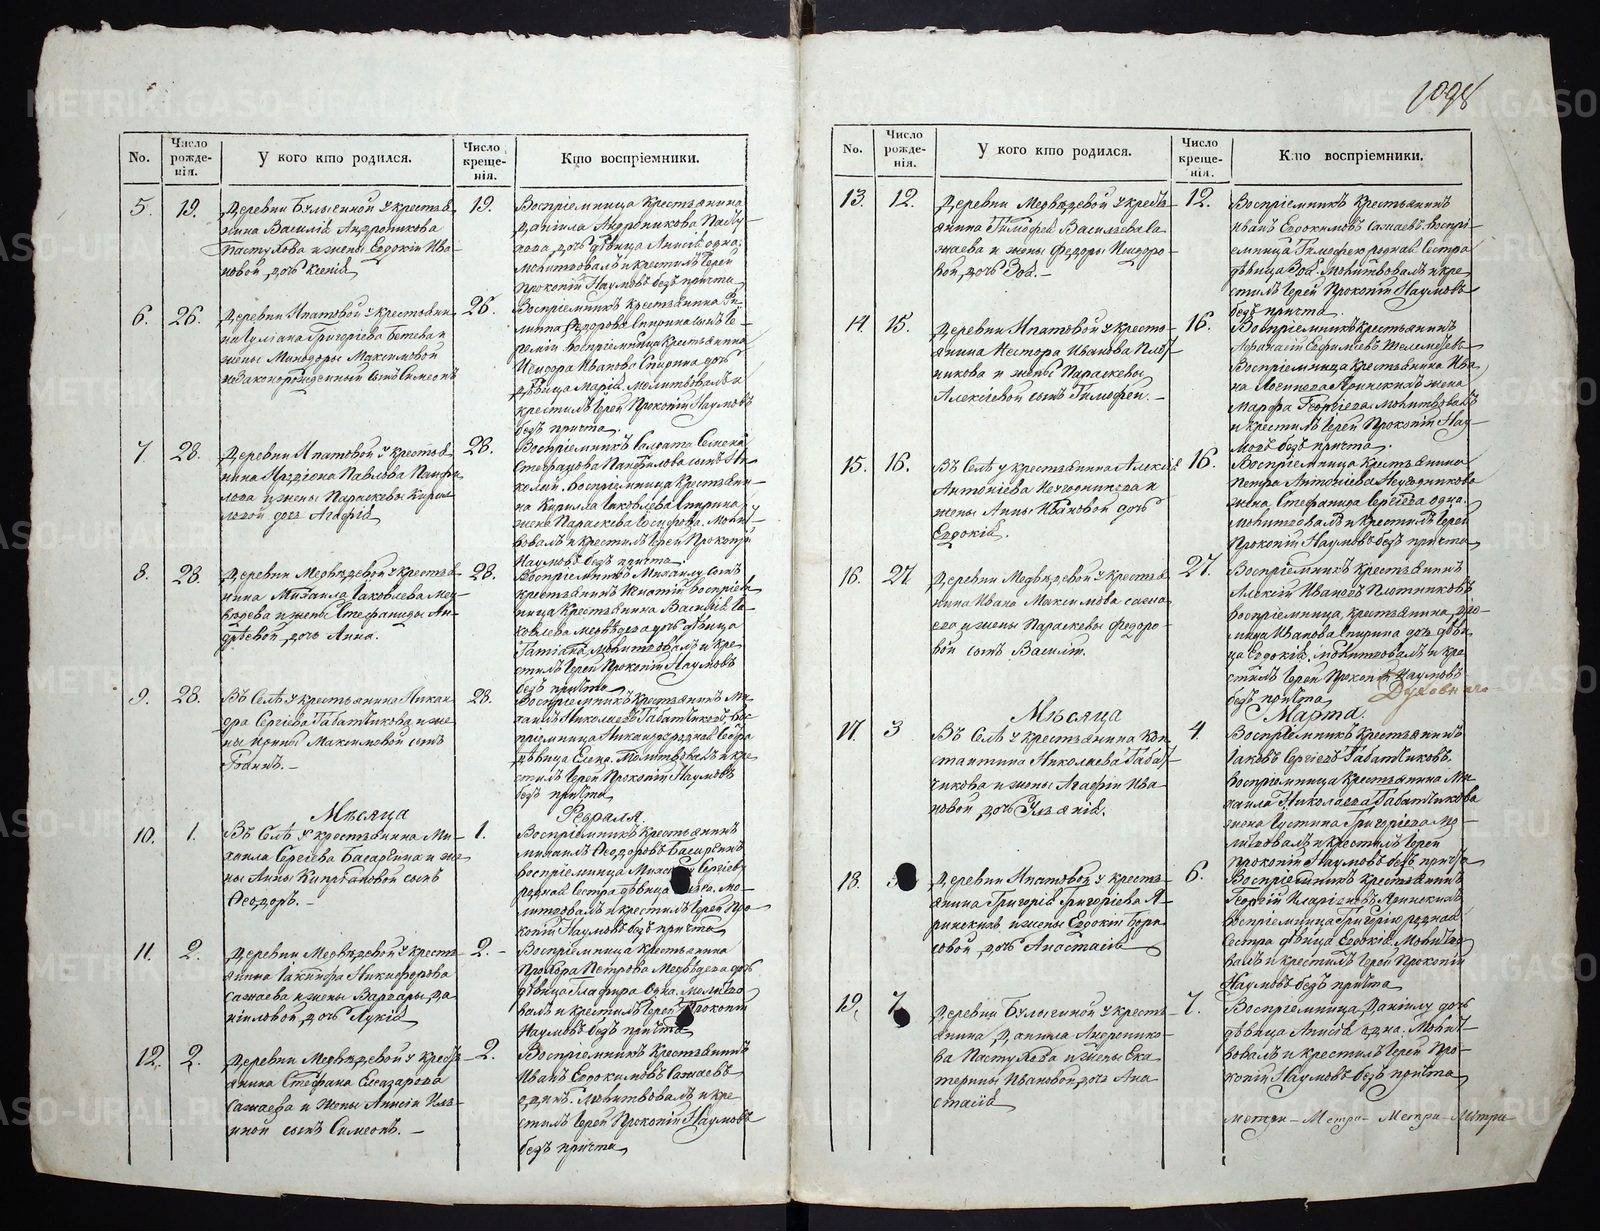 1098
No.
Число рожде-нія.
У кого кто родился.
Число креще-нія.
Кто воспріемники.
5. 19.
Деревни Булыгиной у крестья
нина Василія Андроникова
Пастухова и жены Евдокіи Ива
новой, дочь Ксенія
19.
Воспріемница Крестьянина
Даніила Андроникова Пасту
хова, дочь дѣвица Анисія одна;
молитвовалъ и крестилъ Іерей
Прокопій Наумовъ безъ причта
6. 26.
Деревни Ипатовой у крестьяни
на Григоріева
жены Минодоры Максимовой
незаконорожденный сынъ Симеонъ
26.
Воспріемникъ крестьянина Фи
липпа Ѳедорова Спирина сынъ
воспріемница крестьянина
Исидора Иванова Спирина дочь
дѣвица Марія. молитвовалъ и
крестилъ Іерей Прокопій Наумовъ
безъ причта.
7. 28.
Деревни Ипатовой у крестья
нина Павлова Панфи
лова и жены Параскевы Кирил
ловой дочь Агафія
28.
Воспріемникъ Солдата Семена
Стефанова Панфилова сынъ Ни
колай. воспріемница Крестьяни
на Кирилла Іаковлева Спирина
жена Параскева Іосифова. Молит
вовалъ и крестилъ Іерей Прокопій
Наумовъ безъ причта.
8. 28.
Деревни Медвѣдевой у крестья
нина Михаила Іаковлева Мед
вѣдева и жены Стефаниды Ан
дрѣевой, дочь Анна.
28.
Воспріемникъ Михаилу сынъ
крестьянинъ Игнатій воспріем
ница Крестьянина Василія Іа
ковлева Медвѣдева дочь дѣвица
Татіана, молитвовалъ и кре
стилъ Іерей Прокопій Наумовъ
безъ причта
9. 28.
Въ Селѣ у крестьянина Никан
дра Сергіева Табатчикова, и же
ны Ирины Максимовой сынъ
Іоаннъ. —
28.
Воспріемникъ Крестьянинъ Ми
хаилъ Николаевъ Табатчиковъ, вос
пріемница Никандру родная Сестра
дѣвица Елена. Молитвовалъ и кре
стилъ Іерей Прокопій Наумовъ
безъ причта
Мѣсяца Февраля.
10. 1.
Въ Селѣ у крестьянина Ми
хаила Сергіева Басаргина и же
ны Анны Кипріановой сынъ
Ѳеодоръ. —
1.
Воспріемникъ Крестьянинъ
Михаилъ Ѳеодоровъ Басаргинъ
воспріемница Сергіеву
родная Сестра дѣвица Мо
литвовалъ и крестилъ Іерей Про
копій Наумовъ безъ причта
11. 2.
Деревни Медвѣдевой у кресть
янина Іакинфа Никифорова
Сажаева и жены Варвары Да
ніиловой, дочь Лукія
2.
Воспріемница Крестьянина
Прохора Петрова Медвѣдева дочь
дѣвица Глафира Одна. Молитво
валъ и крестилъ Іерей Прокопій
Наумовъ безъ причта
12. 2.
Деревни Медвѣдевой у кресть
янина Стефана Елеазарова
Сажаева и жены Анисіи Иль
иной сынъ Симеонъ. —
2.
Воспріемникъ Крестьянинъ
Иванъ Евдокимовъ Сажаевъ
единъ. молитвовалъ и кре
стилъ Іерей Прокопій Наумовъ
безъ причта
No.
Число рожде-нія.
У кого кто родился.
Число креще-нія.
Кто воспріемники.
13. 12.
Деревни Медвѣдевой у кресть
янина Тимофея Васильева Са
жаева и жены Федоры Исидоро
вой, дочь Зоя. —
12.
Воспріемникъ Крестьянинъ
Иванъ Евдокимовъ Сажаевъ. воспрі
емница Тимофею родная Сестра
дѣвица Зоя. Молитвовалъ и кре
стилъ Іерей Прокопій Наумовъ
безъ причта
14 15.
Деревни Ипатовой у кресть
янина Нестора Иванова Плот
никова и жены Параскевы
Алексіевой сынъ Тимофей. —
16.
Воспріемникъ Крестьянинъ
Афанасій Евфиміевъ
Воспріемница Крестьянина Ива
на жена
Марфа Георгіева. Молитвовалъ
и крестилъ Іерей Прокопій Нау
мовъ безъ причта.
15. 16.
Въ Селѣ у крестьянина Алексія
Антоніева Негодникова и
жены Анны Ивановой дочь
Евдокія.
16.
Воспріемница Крестьянина
Петра Антоніева Негодникова
жена Стефанида Сергіева одна.
молитвовалъ и крестилъ Іерей
Прокопій Наумовъ безъ причта
16. 27
Деревни Медвѣдевой у крестья
нина Ивана Максимова Сажа
ева и жены Параскевы Федоро
вой сынъ Василій.
27.
Воспріемникъ Крестьянинъ
Алексій Ивановъ Плотниковъ
воспріемница, крестьянина, Дио
мида Иванова Спирина дочь дѣви
ца Евдокія. молитвовалъ и кре
стилъ Іерей Прокопій Наумовъ
безъ причта
Духовнаго
Мѣсяца Марта.
17. 3
Въ Селѣ у крестьянина Кон
стантина Николаева Табат
чикова и жены Агафіи Ива
новой, дочь Уліанія.
4.
Воспріемникъ Крестьянинъ
Іаковъ Сергіевъ Табатчиковъ.
воспріемница крестьянина Ми
хаила Николаева Табатчикова
жена Іустина Григоріева Мо
литвовалъ и крестилъ Іерей
Прокопій Наумовъ безъ причта
18.
Деревни Ипатовой у кресть
янина Григорія Григоріева Я
ринскихъ и жены Евдокіи Бори
совой, дочь Анастасія
6.
Воспріемникъ Крестьянинъ
Георгій Иларіоновъ Яринскихъ
воспріемница Григорію родная
Сестра дѣвица Евдокія. Молитво
валъ и крестилъ Іерей Прокопій
Наумовъ безъ причта
19. 7
Деревни Булыгиной у кресть
янина Даніила Андронико
ва Пастухова и жены Ека
терины Ивановой, дочь Ана
стасія
7.
Воспріемница, Даніилу дочь
дѣвица Анисія одна. Молит
вовалъ и крестилъ Іерей Про
копій Наумовъ безъ причта
метри — Метри — Метри — Метри
METRIKI.GASO-URAL.RU